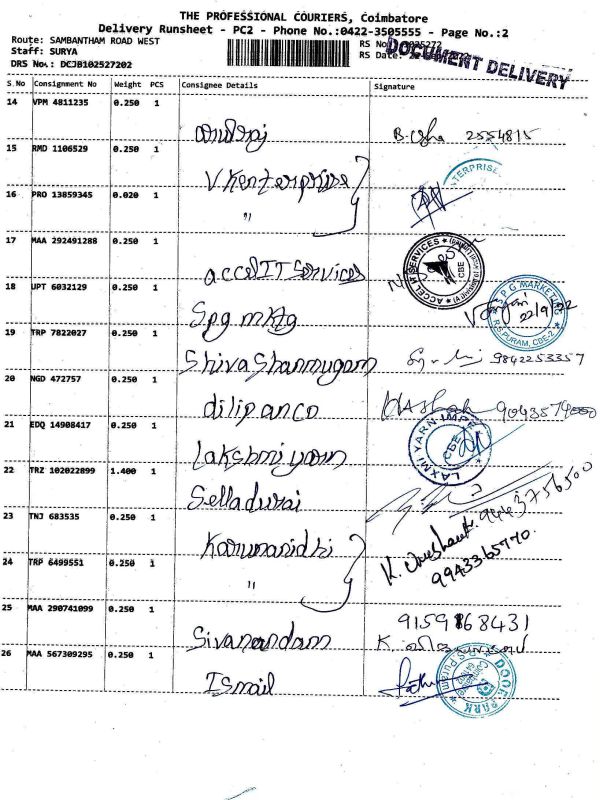 THE PROFESSIONAL COURIERS, Coimbatore
Delivery Runsheet - PC2 - Phone No.:0422-3505555 - Page No.:2
Route: SAMBANTHAM ROAD WEST
RS No
Staff: SURYA
RS Date:
DRS No.: DCJB102527202
DOCUMENT DELIVERY
S.No Consignment No Weight PCS Consignee Details Signature
14 VPM 4811235 0.250 1
B. Usha 2554815
15 RMD 1106529 0.250 1
V K enterprise
ENTERPRISE
16 PRO 13859345 0.020 1
"
17 MAA 292491288 0.250 1
accel IT Services
ACCEL IT SERVICES
CBE
18 UPT 6032129 0.250 1
Spg mktg
S P G MARKETING
22/9/22
R.S.PURAM, CBE-2
19 TRP 7822027 0.250 1
Shiva Shanmugam
9842253357
20 NGD 472757 0.250 1
dilip anco
21 EDQ 14908417 0.250 1
Lakshmi yarn
LAXMI YARN IMPEX
CBE
22 TRZ 102022899 1.400 1
Selladurai
9443756500
23 TNJ 683535 0.250 1
Karunanidhi
K.
9943365770
24 TRP 6499551 0.250 1
"
25 MAA 290741099 0.250 1
Sivanandam
9159868431
K.
26 MAA 567309295 0.250 1
Ismail
DOOR PARK